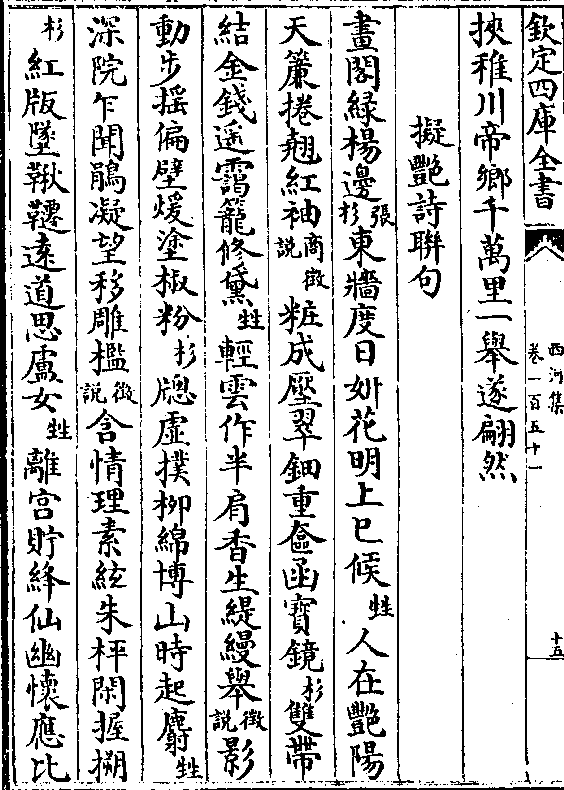 欽定四庫全書
西河集
卷一百五十一
十五
挾稚川帝鄉千萬里一舉遂翩然
擬豔詩聯句
畫閣綠楊邊張杉東牆度日妍花明上巳候甡人在豔陽
天簾捲翹紅袖商徵說粧成壓翠鈿重奩函寶鏡杉雙帶
結金錢遥靄籠修黛甡輕雲作半肩香生緹縵舉徵說影
動步搖偏壁煖塗椒粉杉牕虛撲柳綿博山時起麝甡
深院乍聞鵑凝望移雕檻徵說含情理素絃朱枰閑握搠
杉紅版墜鞦韆遠道思盧女甡離宮貯絳仙幽懷應比